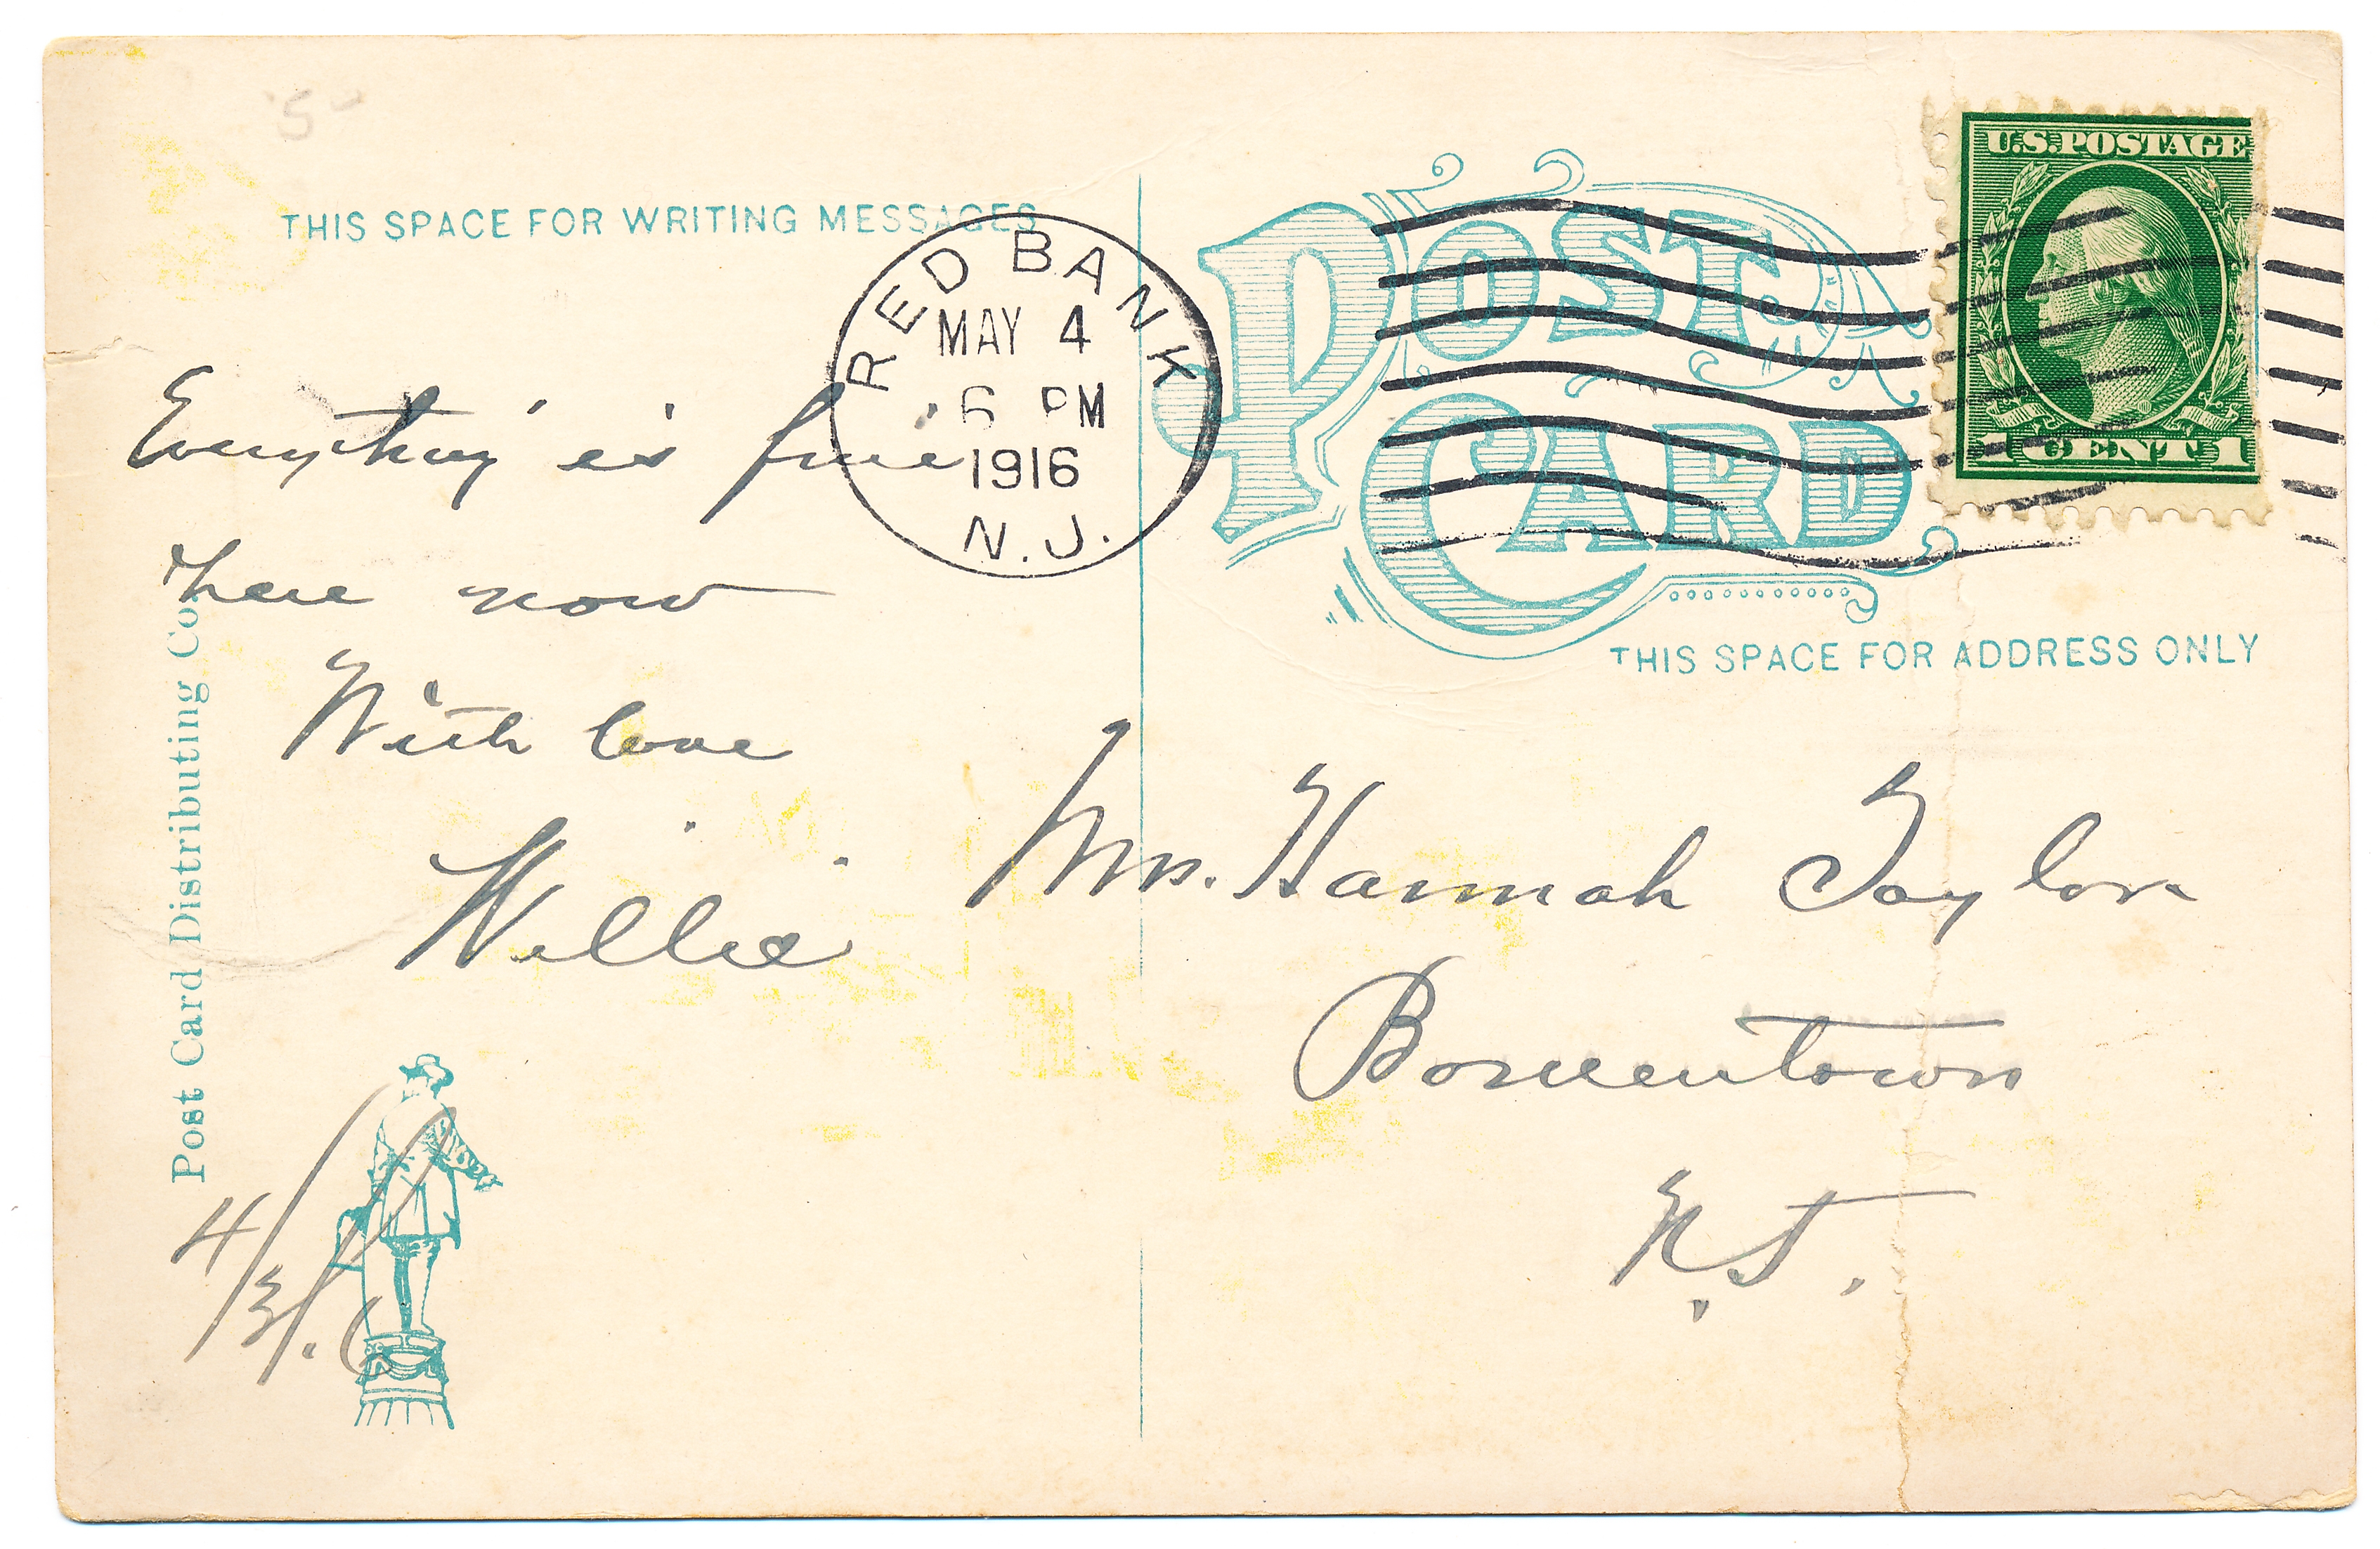 THIS SPACE FOR WRITING MESSAGES
RED BANK
MAY 4
6 PM
1916
N.J.
POST CARD
U.S. POSTAGE
1 CENT 1
THIS SPACE FOR ADDRESS ONLY
Everything is fine
here now
With love
Willie
Mrs. Hannah Taylor
N.J.
Post Card Distributing Co.